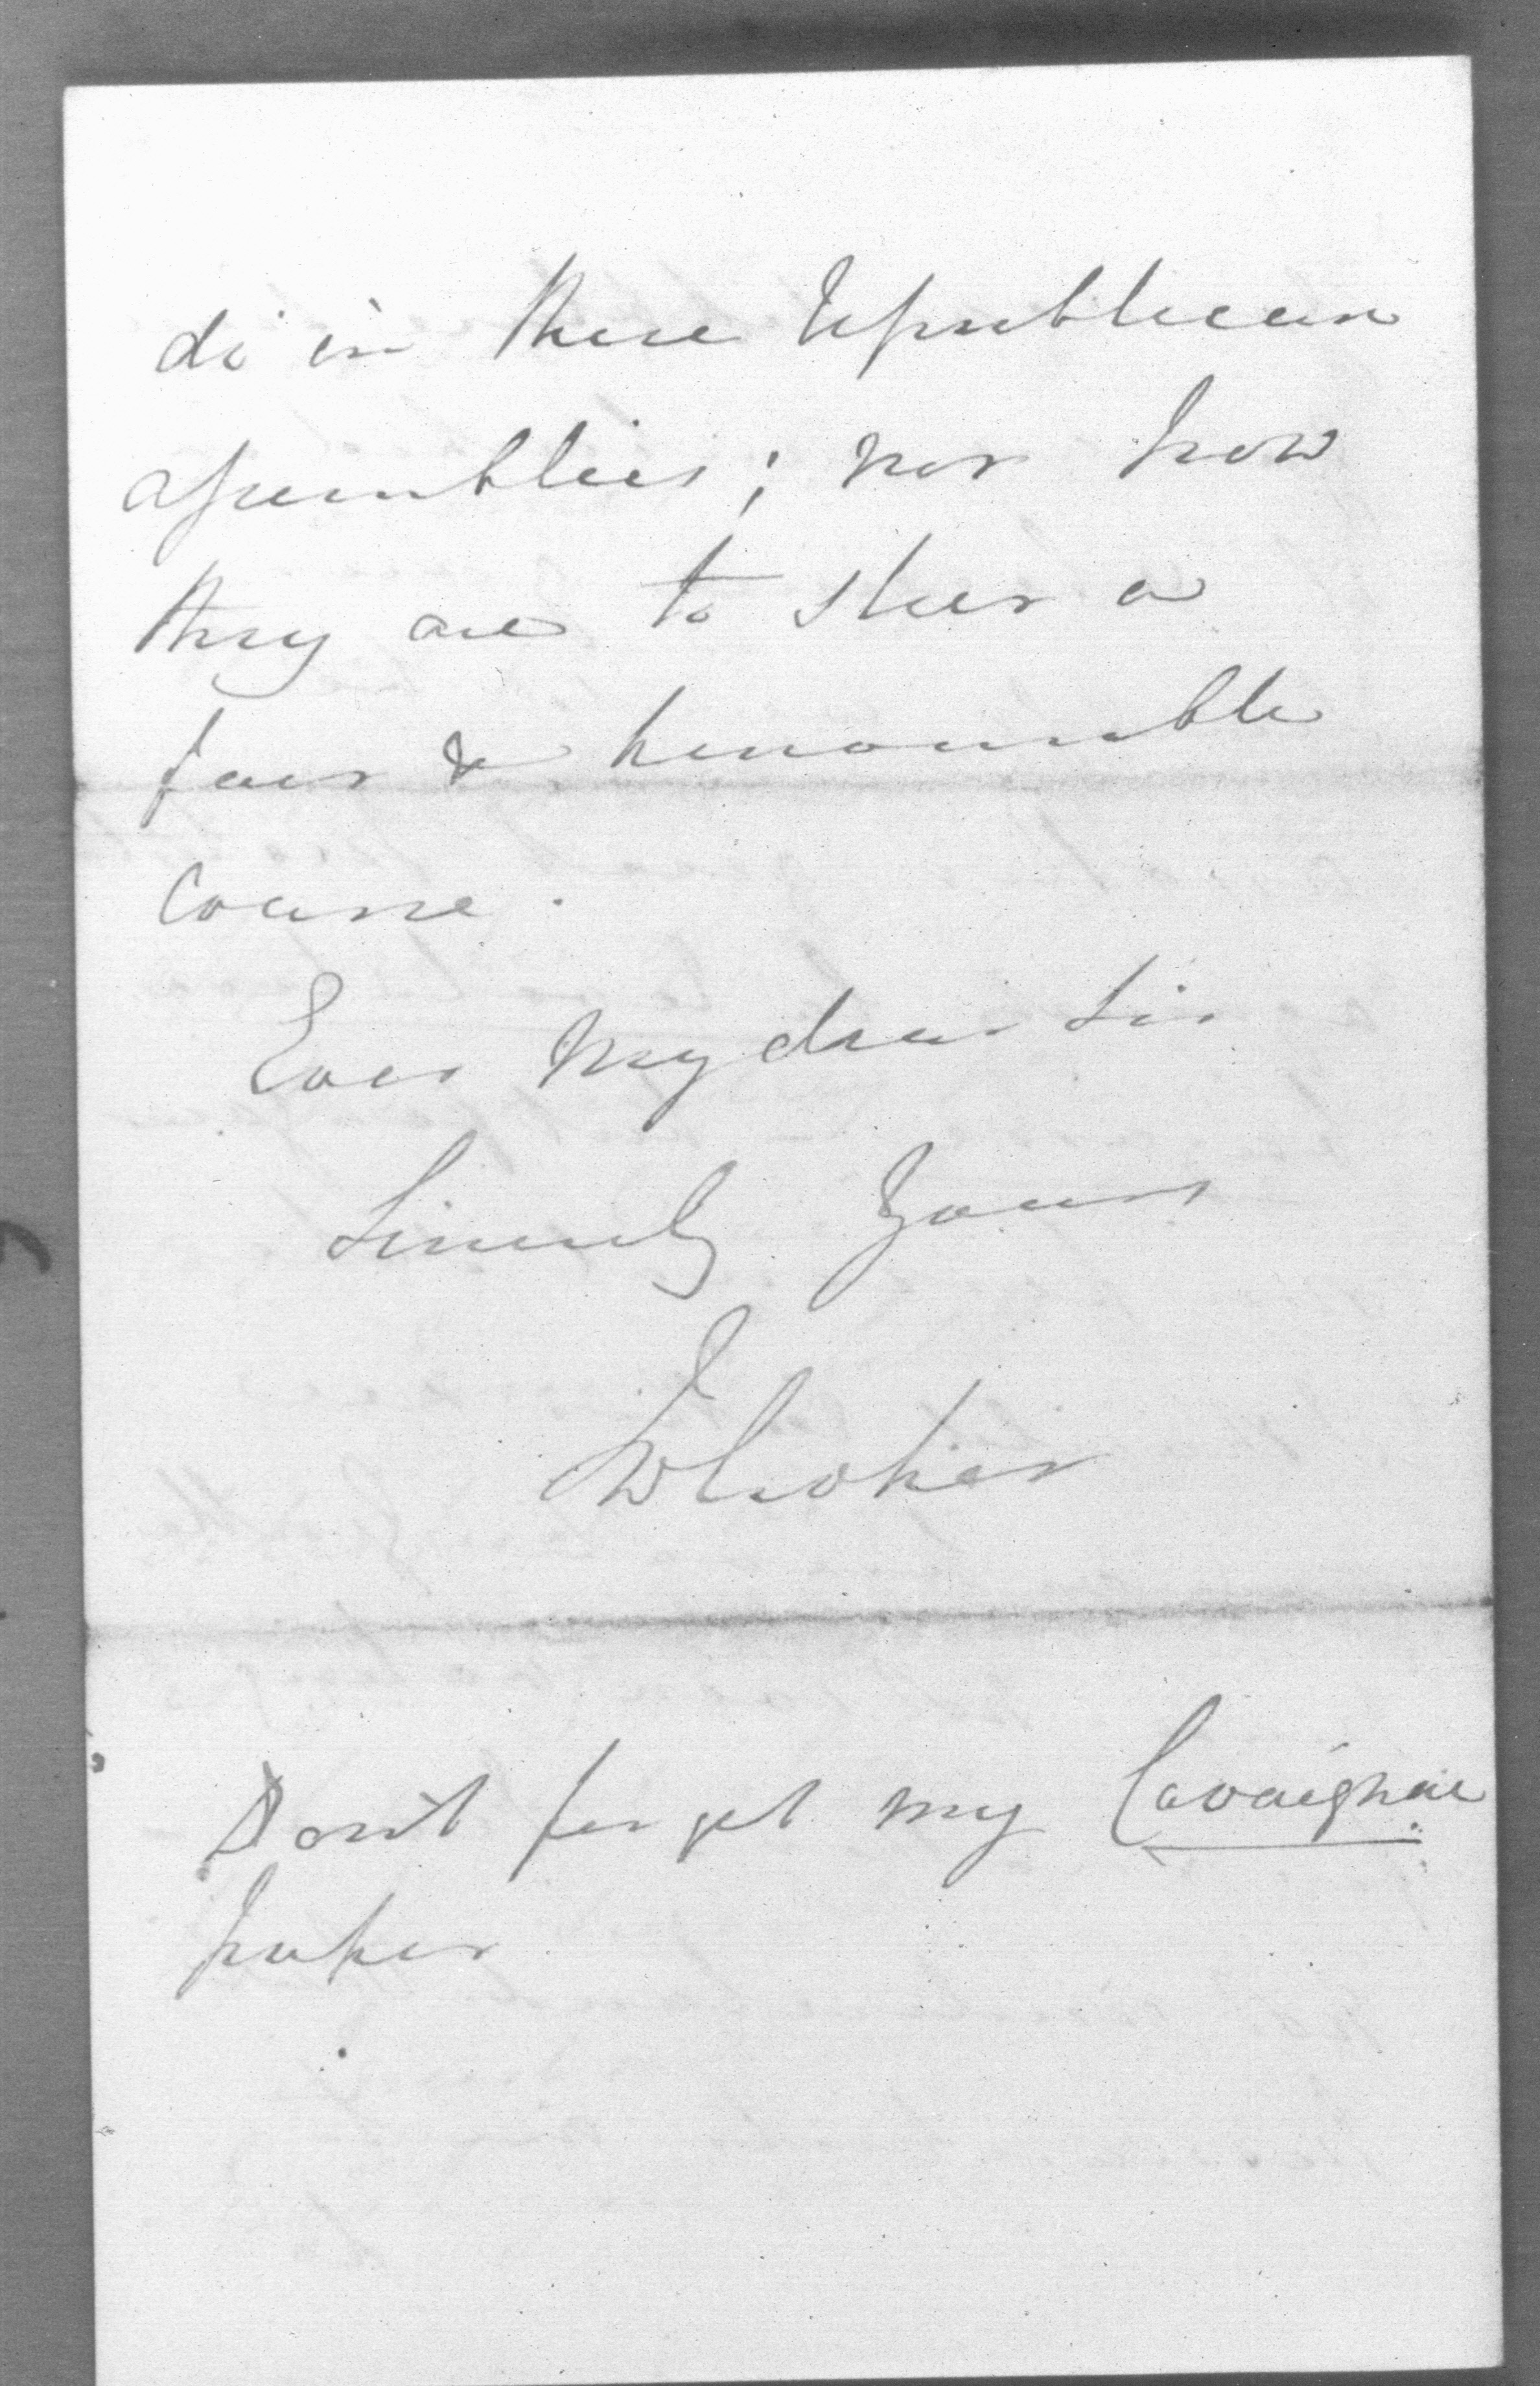 do in these republican
assemblies; nor how
they are to steer a
fair & honourable
course.
Ever My dear Sir
Sincerely Yours
JWCroker
Don't forget my Cavaignac
paper